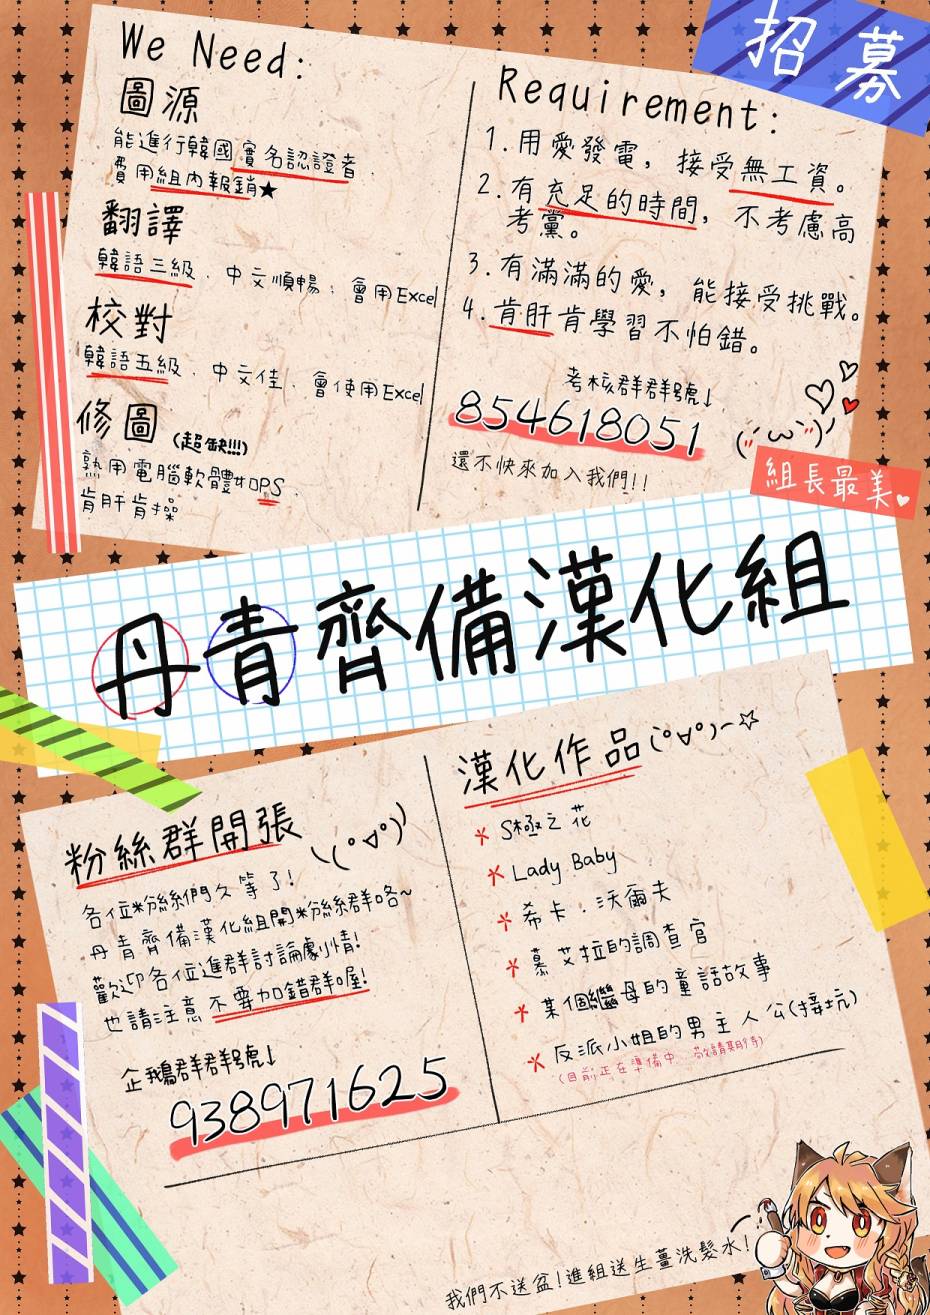 招募
We Need:
圖源
能進行韓國實名認證者.
費用組內報銷★
翻譯
韓語三級、中文順暢、會用Excel
校對
韓語五級、中文佳、會使用Excel
修圖(超缺!!!)
熟用電腦軟體如PS、
肯肝肯操
Requirement:
1.用愛發電，接受無工資。
2.有充足的時間，不考慮高
考黨。
3.有滿滿的愛，能接受挑戰。
4.肯肝肯學習不怕錯。
考核群群號↓
854618051
還不快來加入我們!!
組長最美♥
丹青齊備漢化組
粉絲群開張\(°▽°))
各位粉絲們久等了!
丹青齊備漢化組開粉絲群咯~
歡迎各位進群討論劇情!
也請注意不要加錯群喔!
企鵝群群號↓
938971625
漢化作品(°∀°)~☆
* S極之花
* Lady Baby
* 希卡·沃爾夫
* 慕艾拉的調查官
* 某個繼母的童話故事
* 反派小姐的男主人公(接坑)
(目前正在準備中、敬請期待)
我們不送盆!進組送生薑洗髮水!